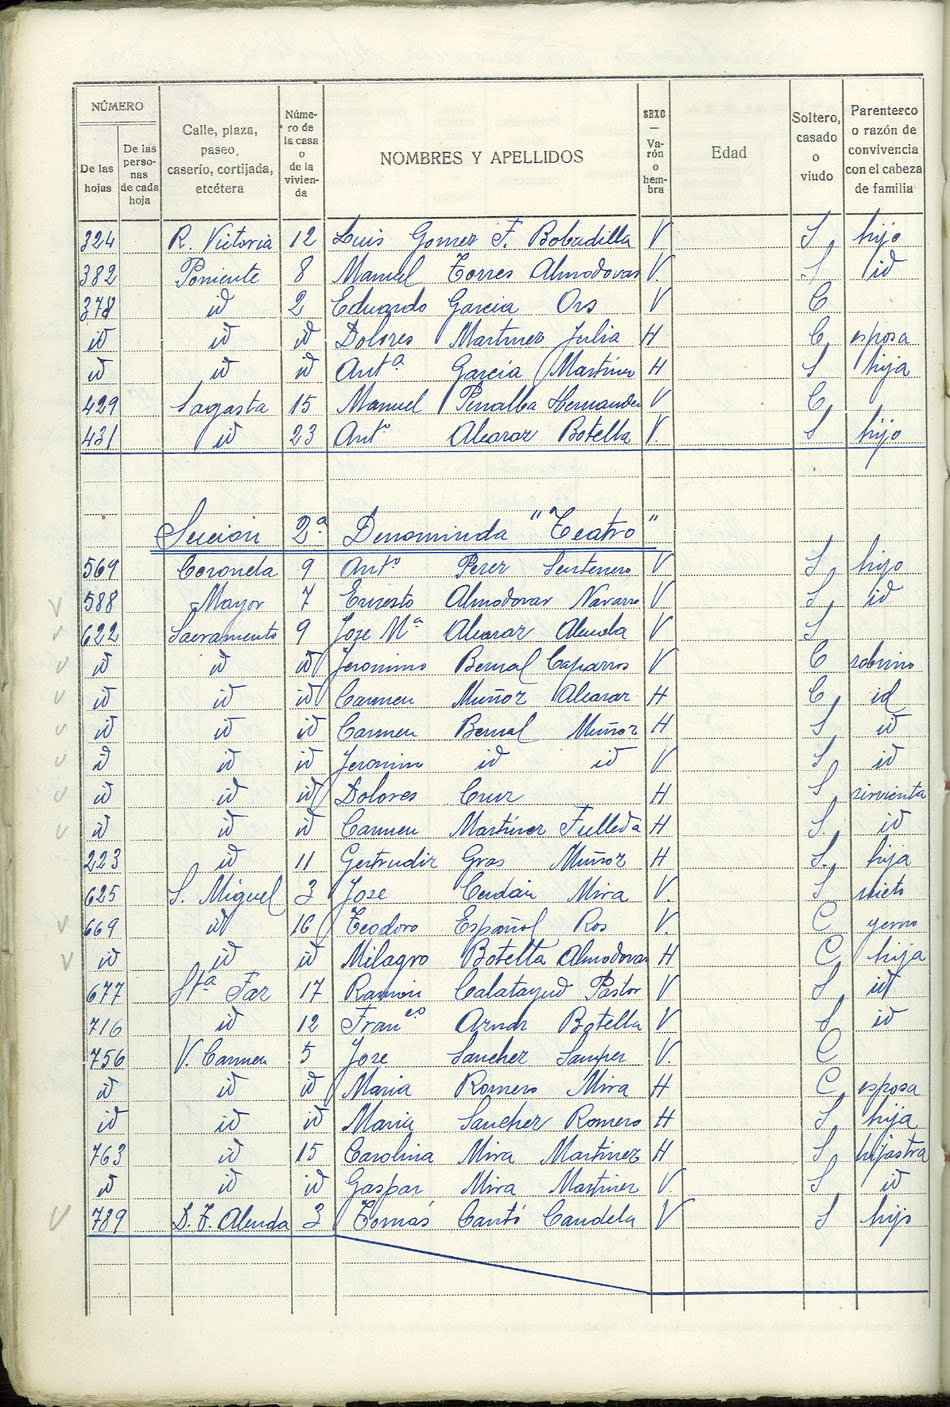 NÚMERO
De las hojas
De las perso- nas de cada hoja
Calle, plaza, paseo, caserío, cortijada, etcétera
Núme- ro de la casa o de la vivien- da
NOMBRES Y APELLIDOS
SEXO — Va- rón o hem- bra
Edad
Soltero, casado o viudo
Parentesco o razón de convivencia con el cabeza de familia
324 R. Victoria 12 Luis Gomez F. Bobadilla V S hijo
382 Poniente 8 Manuel Torres Almodovar V. S id
378 id 2 Eduardo Garcia Ors V C
id id id Dolores Martinez Julia H C esposa
id id id Antª Garcia Martinez H S hija
429 Sagasta 15 Manuel Penalba Hernandez V C
431 id 23 Antº Alcaraz Botella V. S hijo
Sección 2ª Denominda "Teatro"
569 Coroneta 9 Antº Perez V S hijo
588 Mayor 7 Ernesto Almodovar Navarro V S id
622 Sacramento 9 Jose Mª Alcaraz Alenda V S
id id id Jeronimo Bernal Caparros V C sobrino
id id id Carmen Muñoz Alcaraz H C id
id id id Carmen Bernal Muñoz H S id
id id id Jeronimo id id V S id
id id id Dolores Cruz H S sirvienta
id id id Carmen Martinez Fulleda H S. id
223 id 11 Gertrudiz Gras Muñoz H S. hija
625 S. Miguel 3 Jose Cerdán Mira V. S nieto
669 id 16 Teodoro Español Ros V. C yerno
id id id Milagro Botella Almodovar H C hija
677 Stª Faz 17 Ramón Calatayud Pastor V S id
716 id 12 Franco Aznar Botella V S id
756 V. Carmen 5 Jose Sanchez Samper V. C
id id id Maria Romero Mira H C esposa
id id id Maria Sanchez Romero H S hija
763 id 15 Carolina Mira Martinez H S hijastra
id id id Gaspar Mira Martinez V. S id
789 D. T. Alenda 3 Tomás Cantó Candela V S hijo